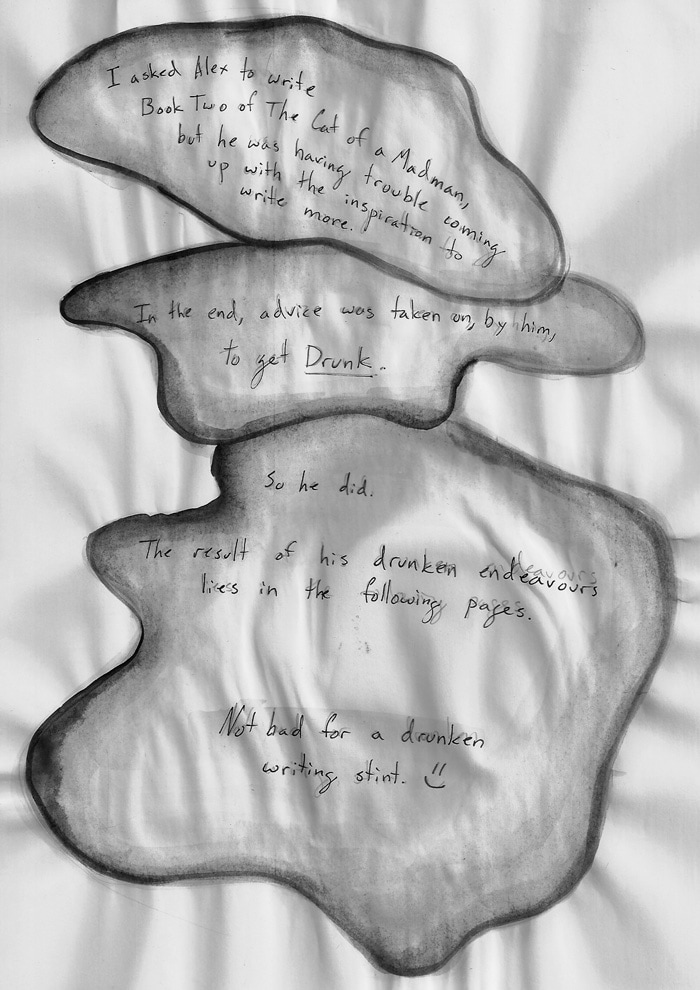 I asked Alex to write
Book Two of The Cat of a Madman,
but he was having trouble coming
up with the inspiration to
write more.
In the end, advice was taken on, by him,
to get Drunk.
So he did.
The result of his drunken endeavours
lies in the following pages.
Not bad for a drunken
writing stint.